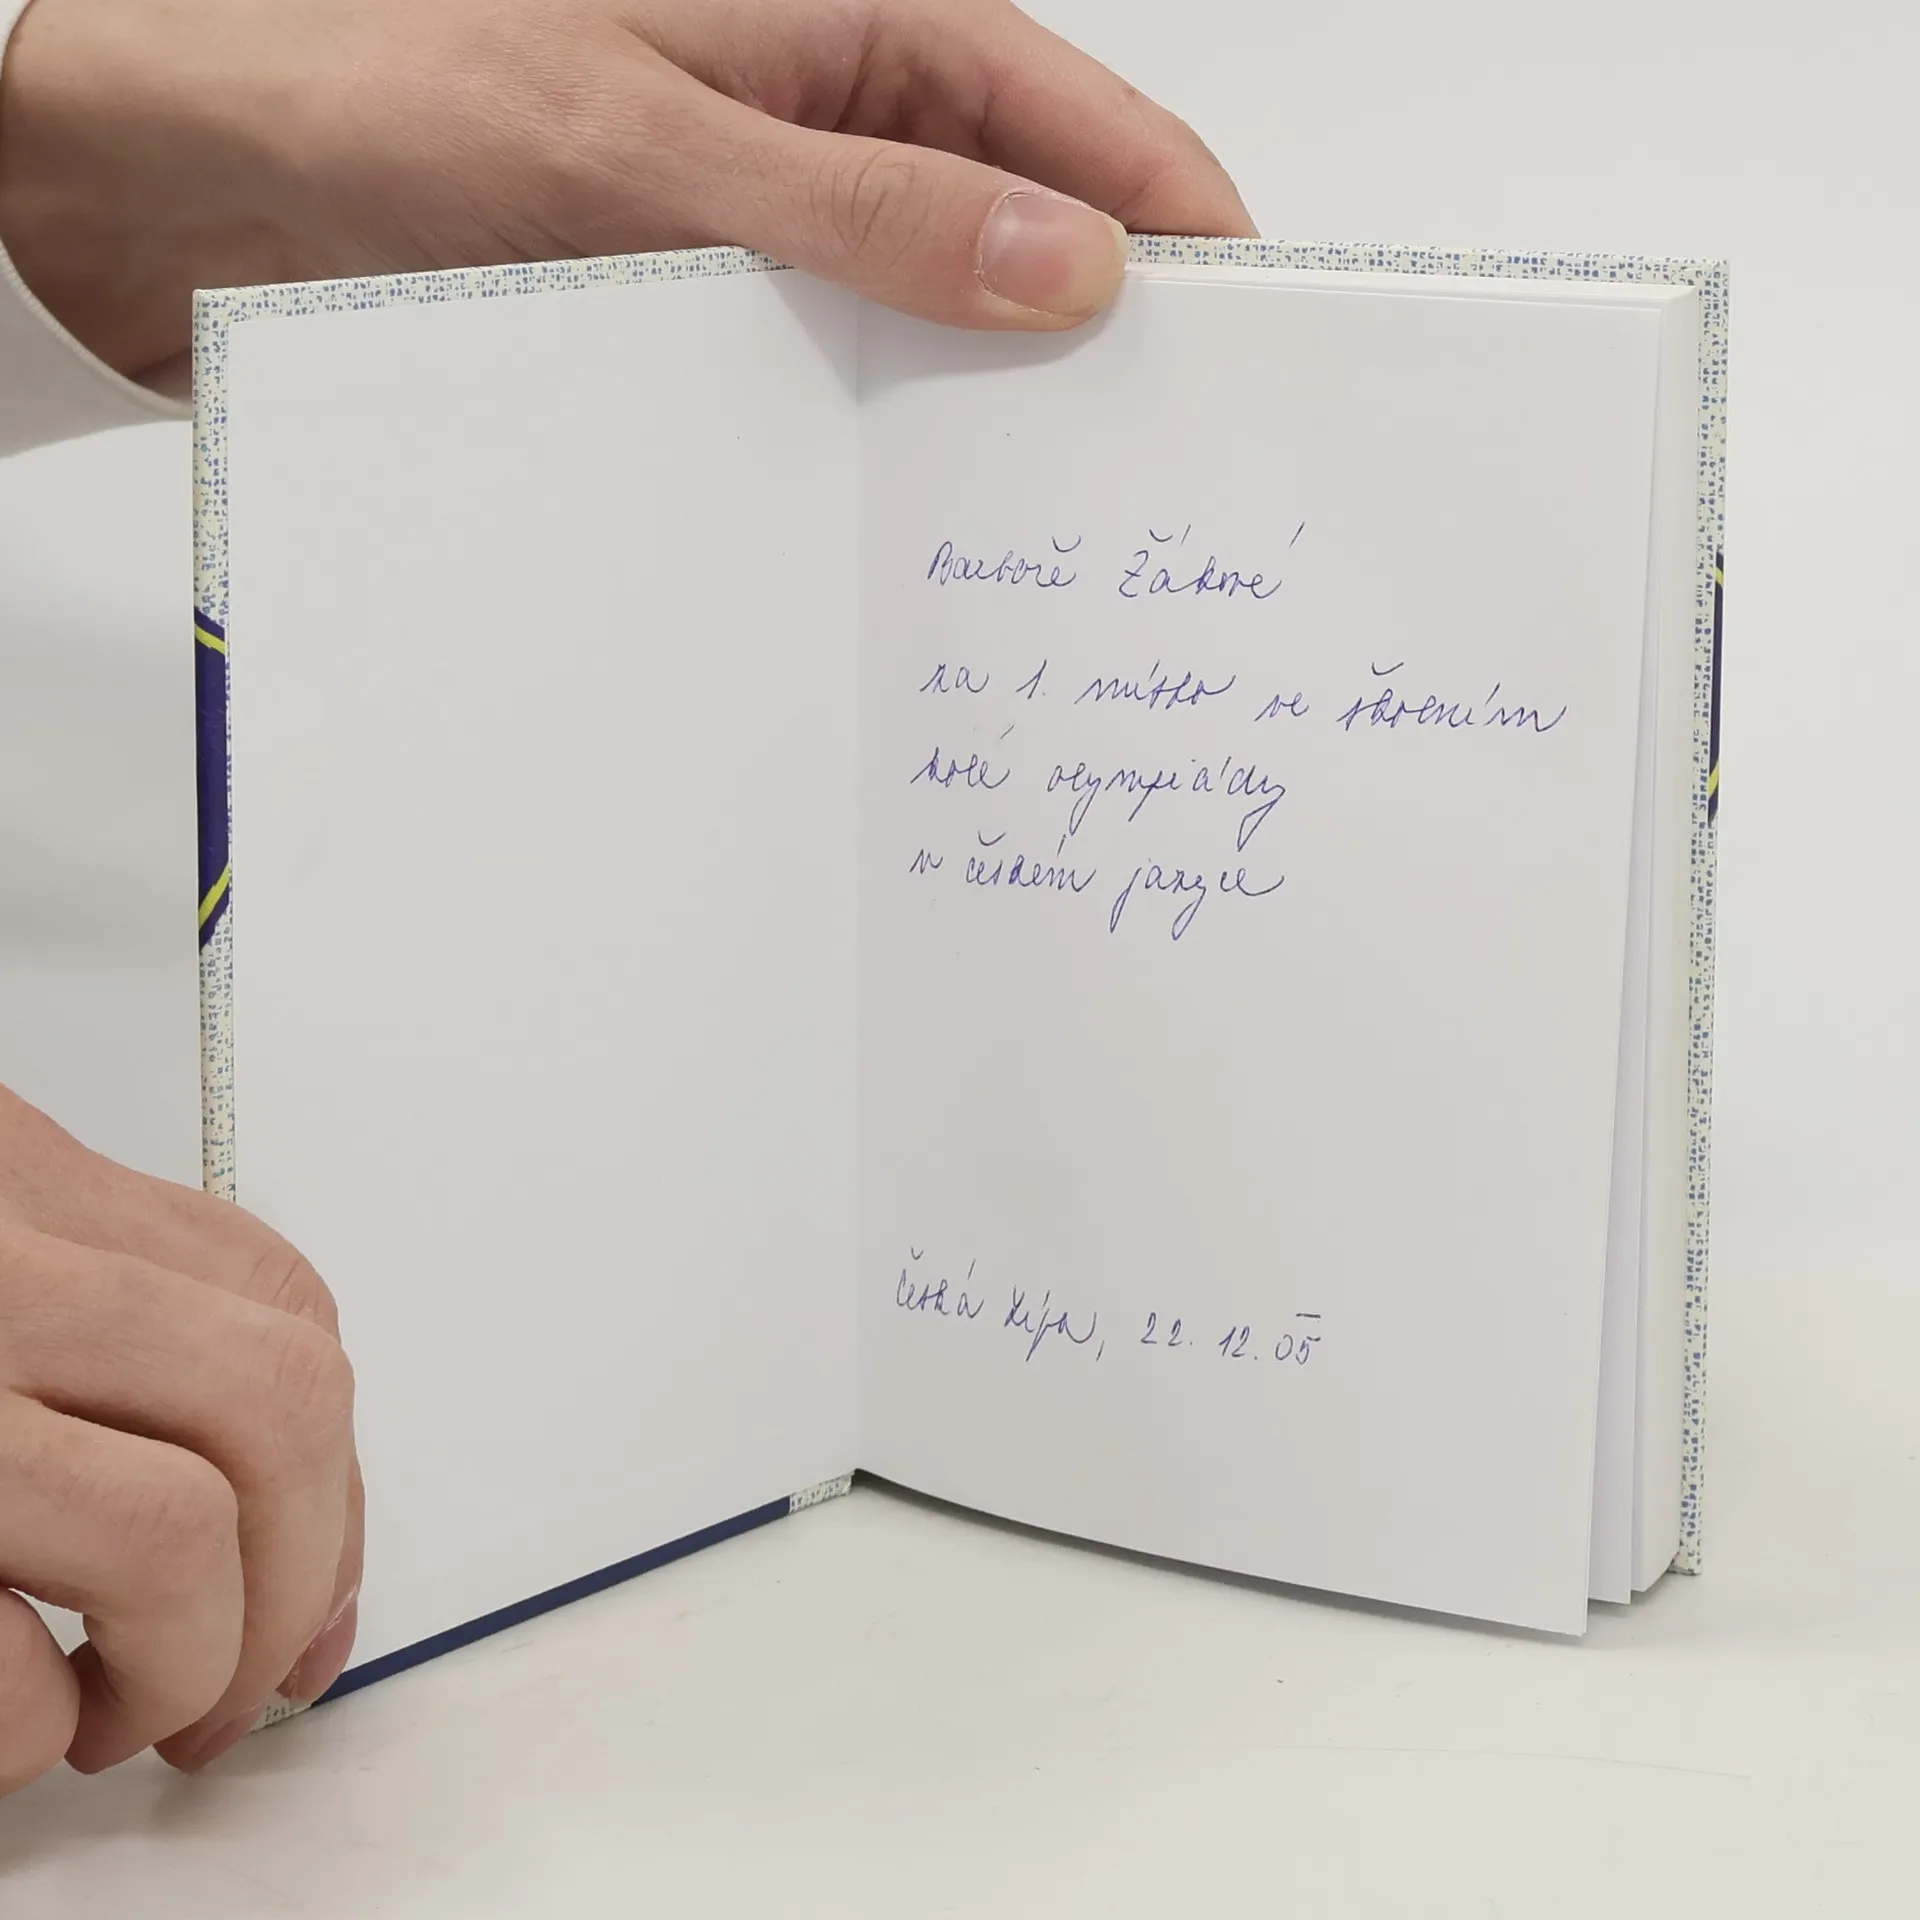 Barboře Žákové
za 1. místo ve školním
kole olympiády
v českém jazyce
Česká Lípa, 22. 12. 05